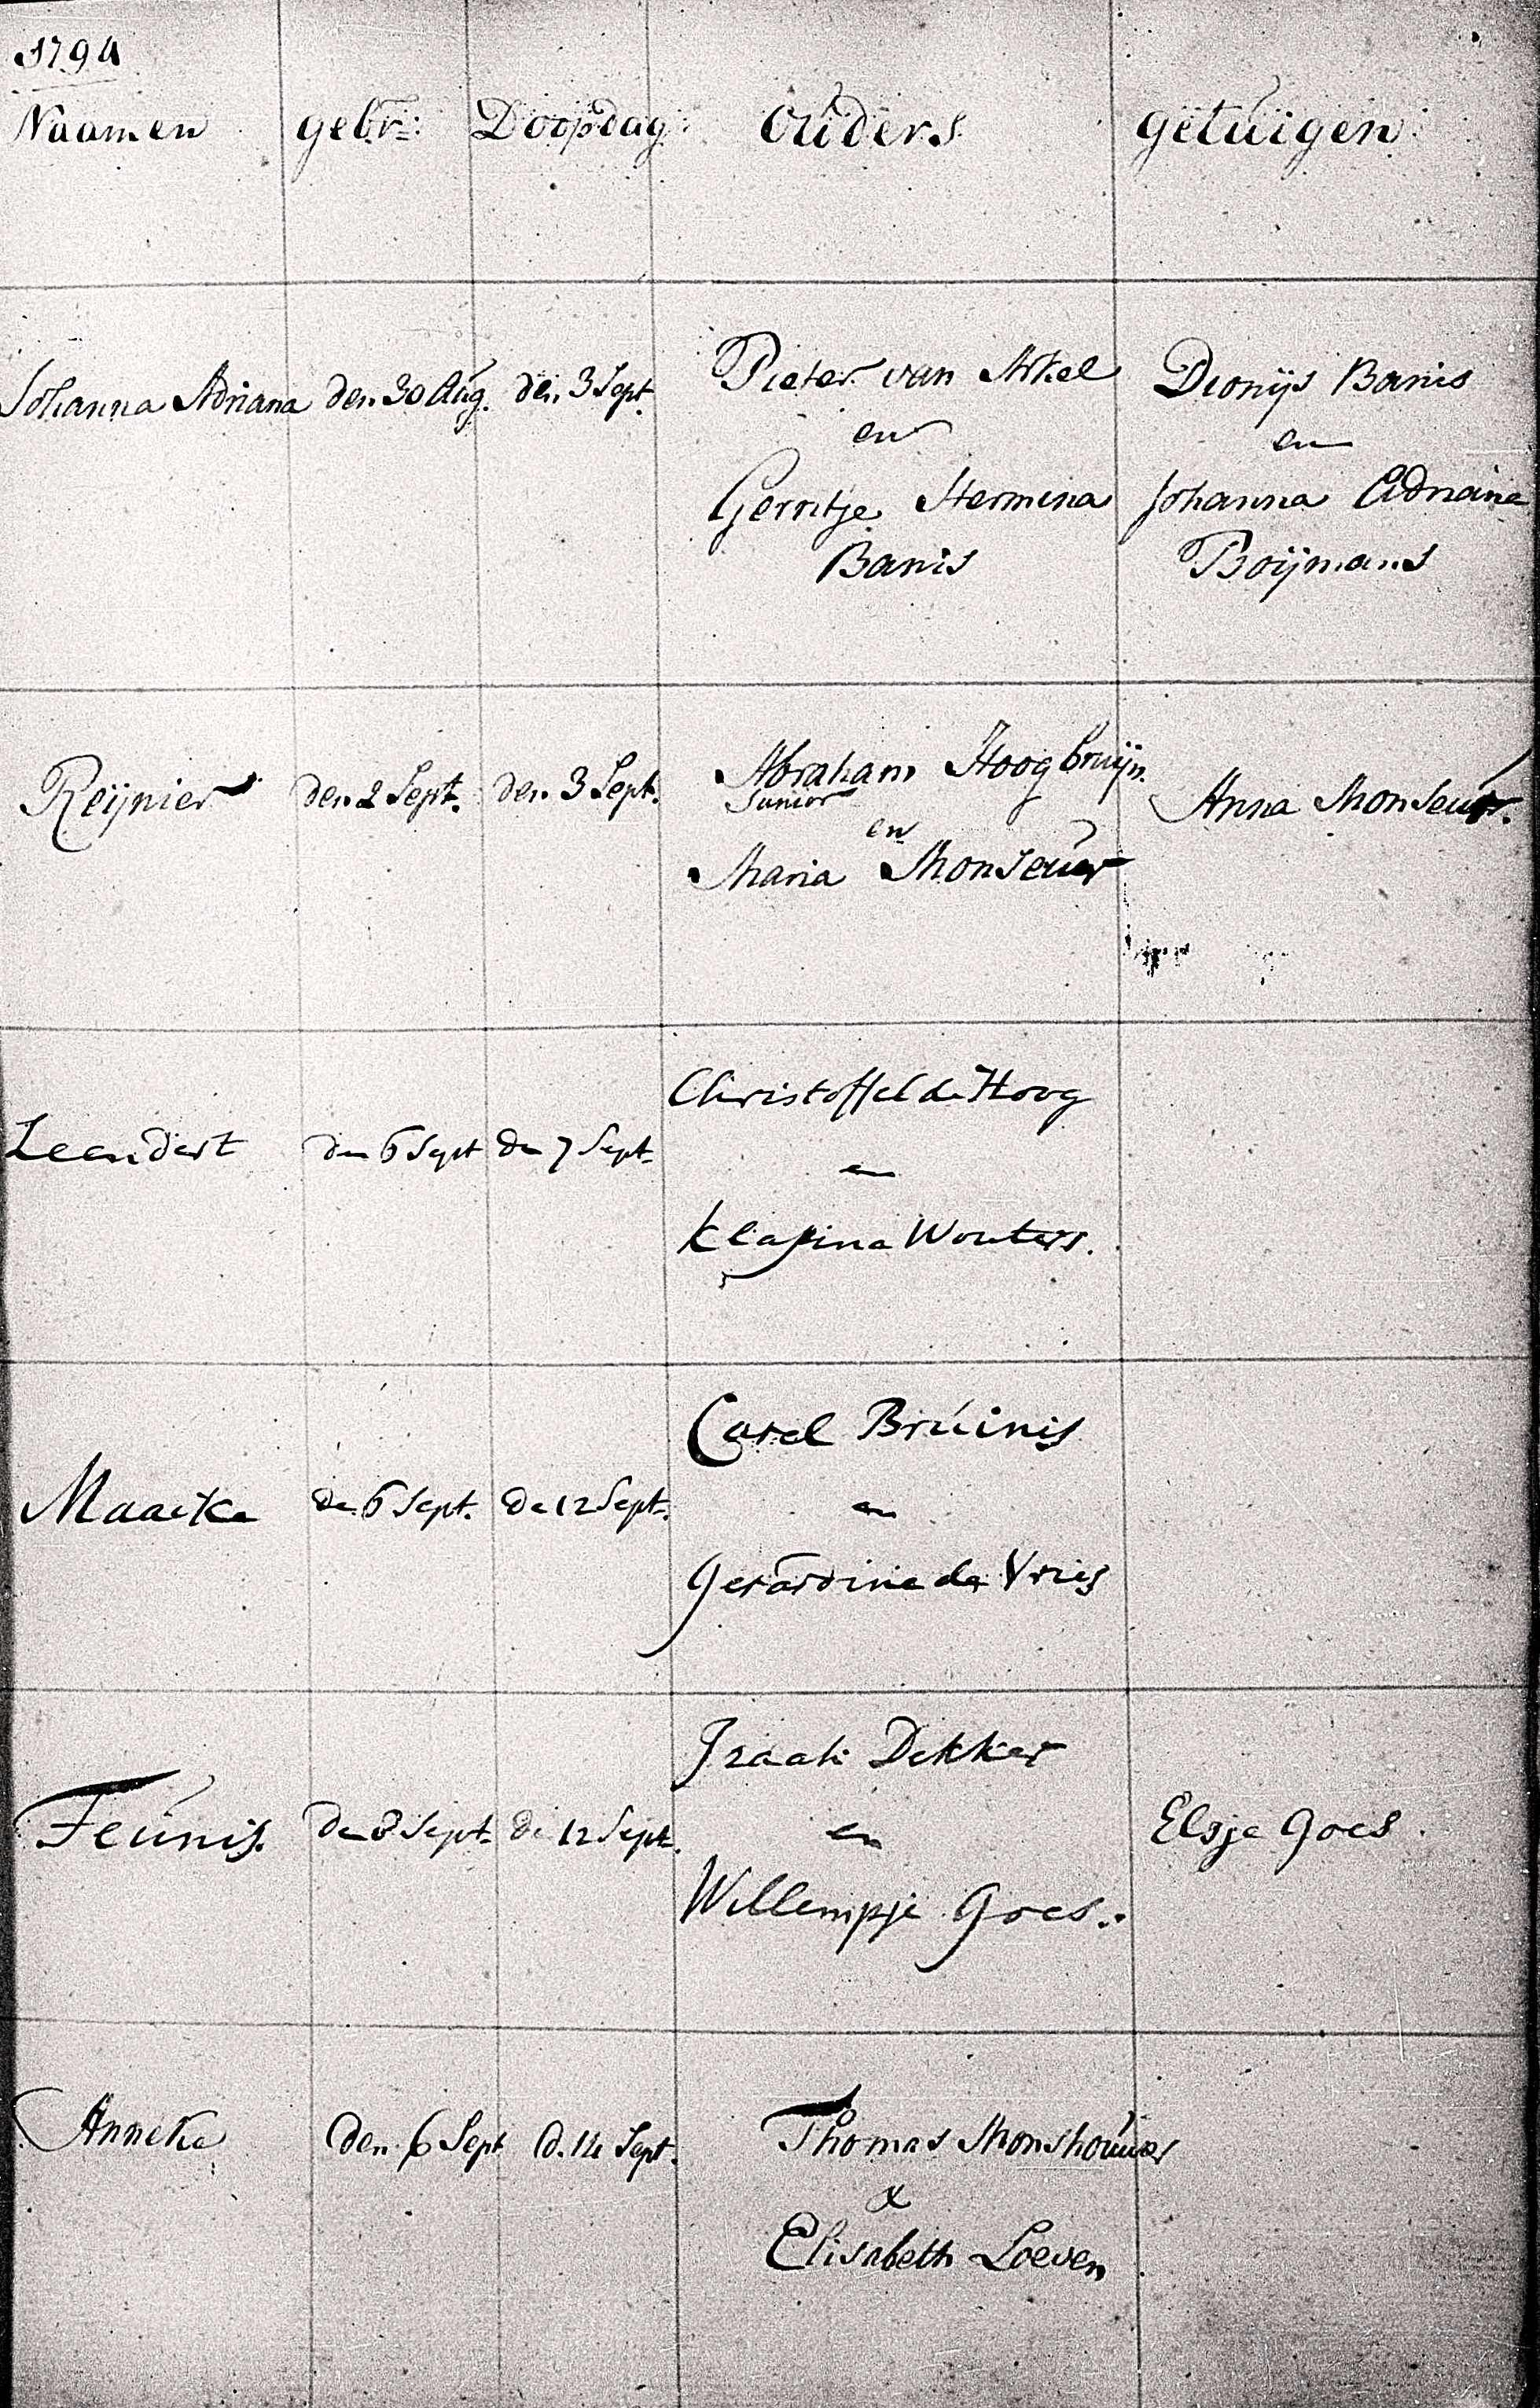 1794
Naamen gebr: Doopdag: Ouders getuigen
Johanna Adriana den 30 Aug. den 3 Sept. Pieter van Arkel Dionijs Banis
en en
Gerritje Hermina Johanna Adriana
Banis Boijmans
Reijnier den 2 Sept. den 3 Sept. Abraham Hoogbruijn Anna Monseur.
Junior
en
Maria Monseur
Leendert den 6 Sept de 7 Sept. Christoffel de Hoog
en
Klasina Wouters.
Maaike de 6 Sept. de 12 Sept. Carel Bruinis
en
Gerardina de Vries
Teunis. de 8 Sept. de 12 Sept. Izaak Dekker Elsje Goes.
en
Willempje Goes.
Anneke den 6 Sept d. 14 Sept. Thomas Monshouwer
&
Elisabeth Loeven